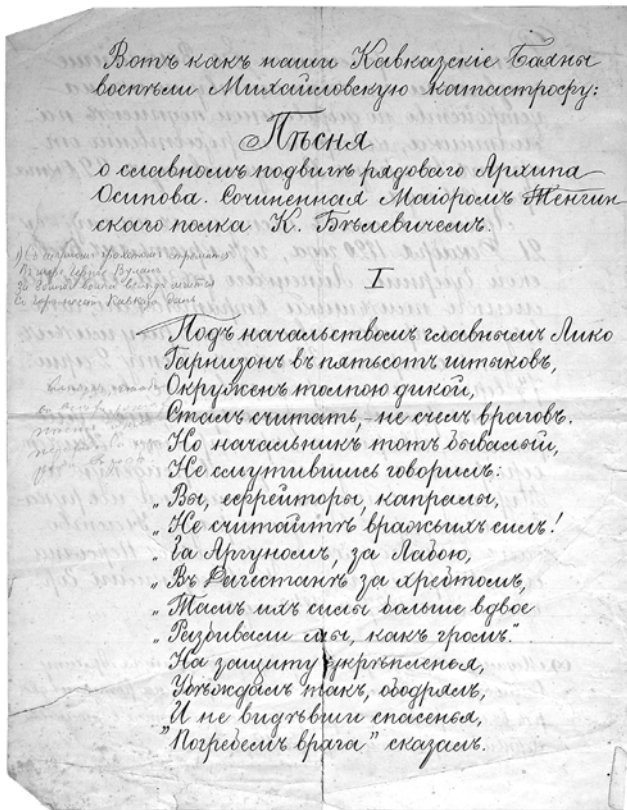 Вотъ какъ наши Кавказскіе Баяны
воспѣли Михайловскую катастрофу:
Пѣсня
о славномъ подвигѣ рядоваго Архипа
Осипова. Сочиненная Маіоромъ Тенгин-
скаго полка К. Бѣлевичемъ.
I
Подъ начальствомъ главнымъ Лико
Гарнизонъ въ пятьсотъ штыковъ,
Окруженъ толпою дикой,
Сталъ считать, не счелъ враговъ.
Но начальникъ тотъ бывалый,
Не смутившись говорилъ:
„Вы, ефрейторы, капралы,
„Не считайтѣ вражьихъ силъ!
„За Аргуномъ, за Лабою,
„Въ Дагестанѣ за хребтомъ,
„Тамъ ихъ силы больше вдвое
„Разбивали мы, какъ громъ."
На защиту укрѣпленья,
Убѣждалъ такъ, ободрялъ,
И не видѣвши спасенья,
"Погребемъ врага" сказалъ.